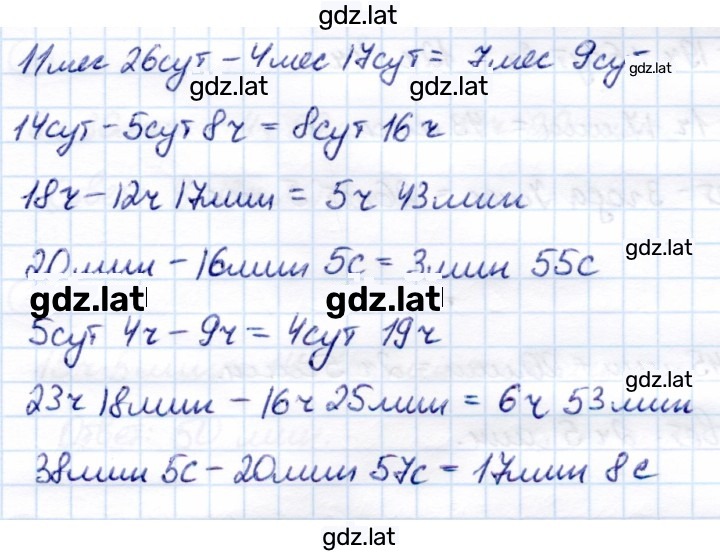 gdz.lat
11мес 26сут - 4мес 17сут = 7мес 9сут
gdz.lat gdz.lat gdz.lat
14сут - 5сут 8ч = 8сут 16ч
18ч - 12ч 17мин = 5ч 43мин
gdz.lat
20мин - 16мин 5с = 3мин 55с
gdz.lat gdz.lat
5сут 4ч - 9ч = 4сут 19ч
gdz.lat
23ч 18мин - 16ч 25мин = 6ч 53мин
38мин 5с - 20мин 57с = 17мин 8с
gdz.lat